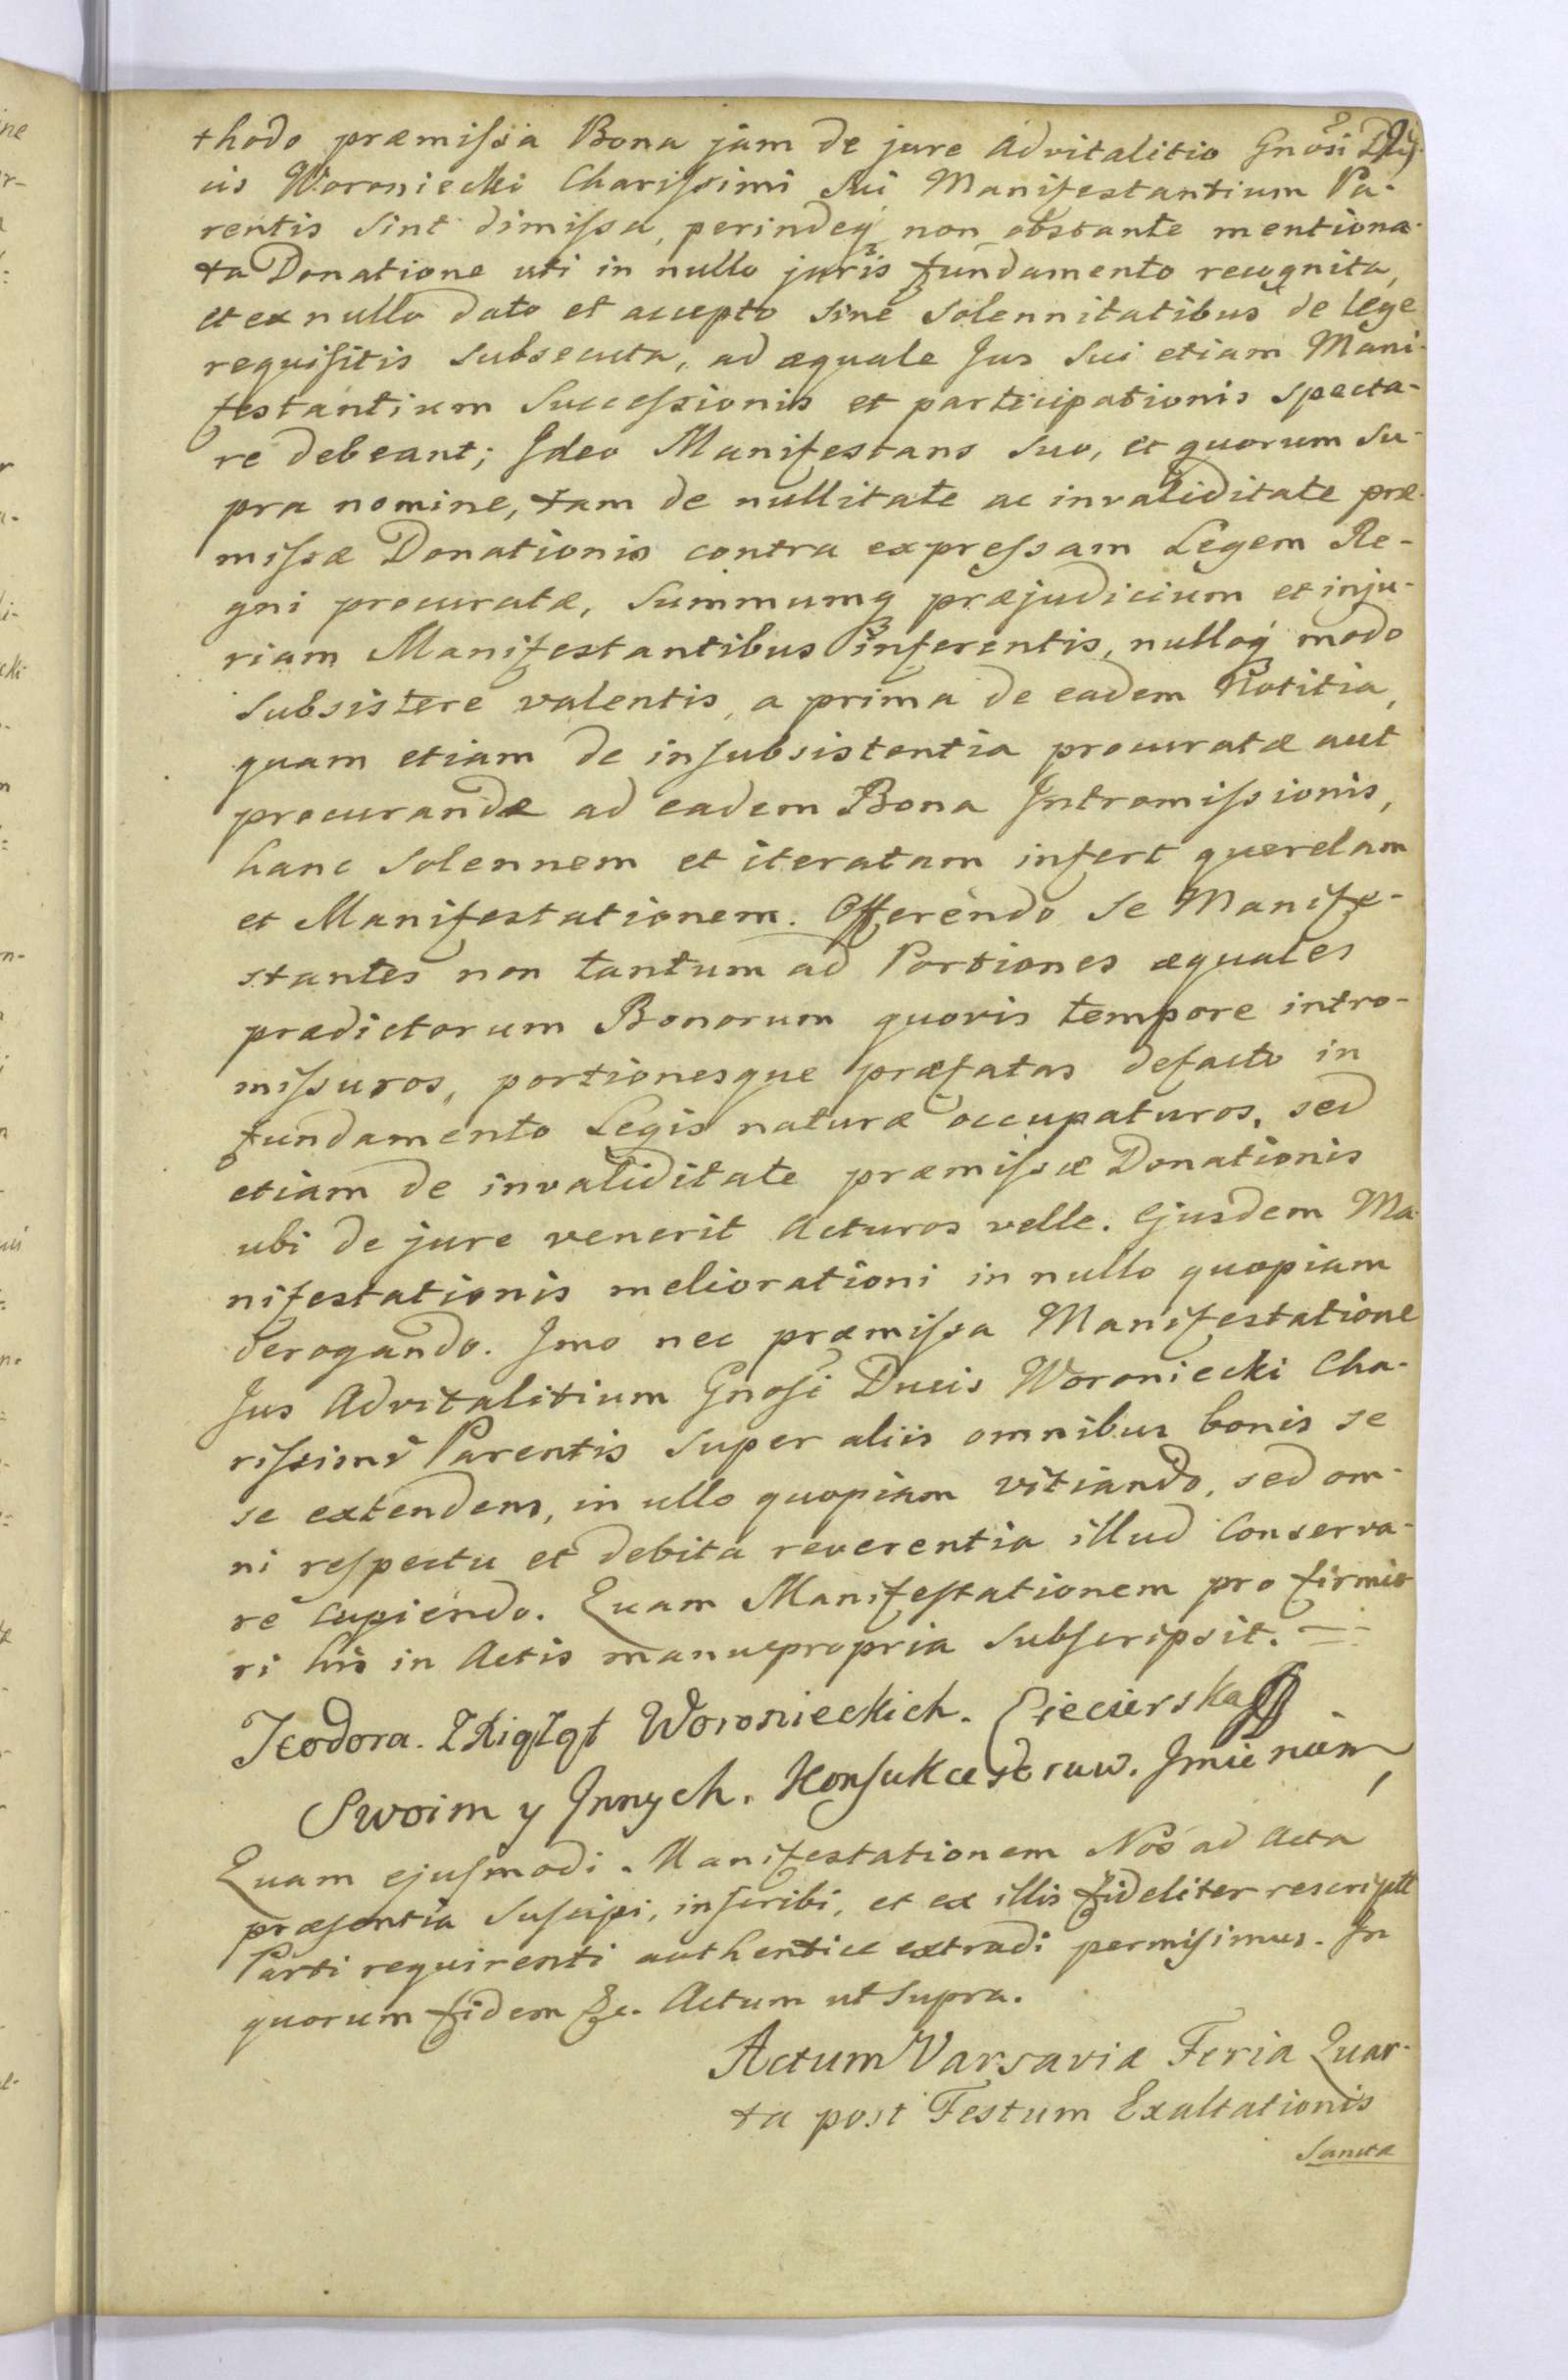 thodo præmissa Bona jam de jure Advitalitio Gnosi Du-
cis Woroniecki Charissimi Sui Manifestantium Pa-
rentis sint dimissa, perindeq non obstante mentiona-
ta Donatione uti in nullo juris fundamento recognita,
et ex nullo dato et accepto sine solennitatibus de lege
requisitis subsecuta, ad æquale Jus sui etiam Mani-
festantium Successionis et participationis specta-
re debeant; Ideo Manifestans suo, et quorum su-
pra nomine, tam de nullitate ac invaliditate præ-
missæ Donationis contra expressam Legem Re-
gni procuratæ, summumq præjudicium et inju-
riam Manifestantibus inferentis, nulloq modo
subsistere valentis, a prima de eadem Notitia,
quam etiam de insubsistentia procuratæ aut
procurandæ ad eadem Bona Intromissionis,
hanc solennem et iteratam infert querelam
et Manifestationem. Offerendo se Manife-
stantes non tantum ad Portiones æquales
prædictorum Bonorum quovis tempore intro-
missuros, portionesque præfatas defacto in
fundamento Legis naturæ occupaturos, sed
etiam de invaliditate præmissæ Donationis
ubi de jure venerit Acturos velle. Ejusdem Ma-
nifestationis meliorationi in nullo quopiam
derogando. Imo nec præmissa Manifestatione
Jus Advitalitium Gnosi Ducis Woroniecki Cha-
rissimi Parentis super aliis omnibus bonis se
se extendens, in ullo quopiam vitiando, sed om-
ni respectu et debita reverentia illud Conserva-
re cupiendo. Quam Manifestationem pro firmio-
ri his in Actis manupropria subscripsit.
Teodora. Woronieckich. Ciecierska
Swoim y Innych. Imieniem
Quam ejusmodi Manifestationem Nos ad Acta
præsentia suscipi, inscribi, et ex illis fideliter rescriptt
Parti requirenti authentice extradi permisimus. In
quorum fidem &c. Actum ut supra.
Actum Varsaviæ Feria Quar-
ta post Festum Exaltationis
Sanctæ